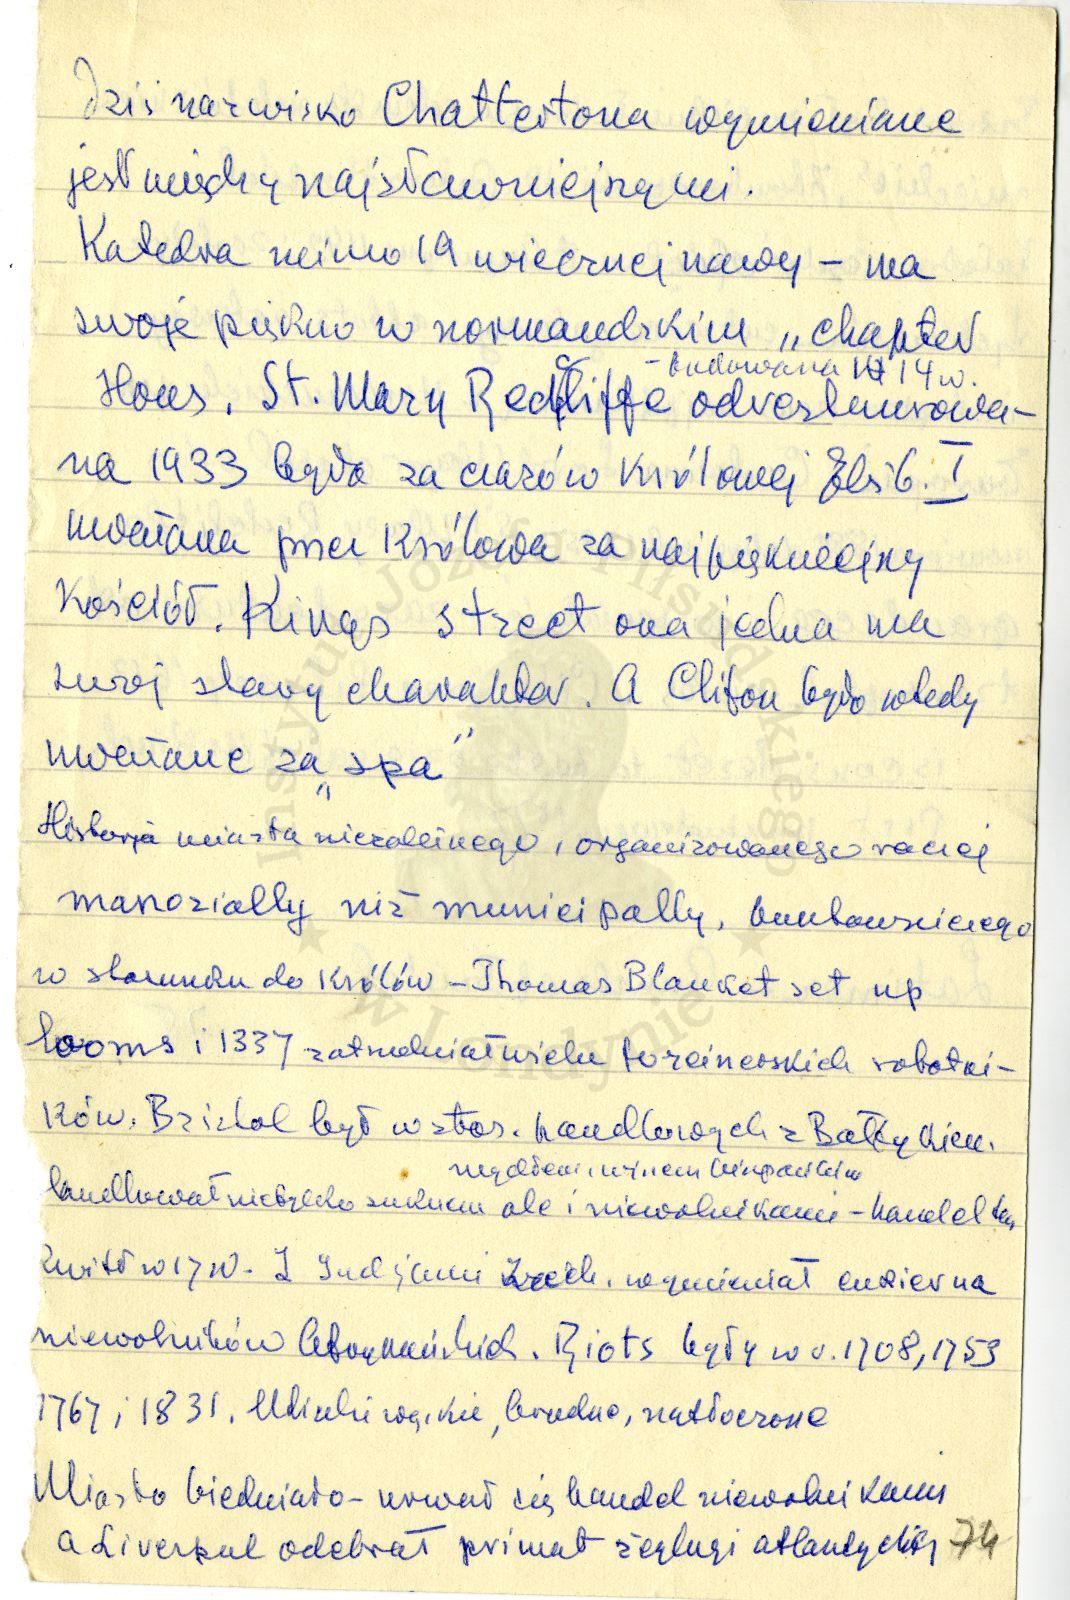 Dziś nazwisko Chattertona wymieniane
jest między najsławniejszymi.
Katedra mimo 19 wiecznej nawy – ma
swoje piękno w normandskim „chapter
– budowana 14 w.
Hous. St. Mary Redcliffe odrestaurowa-
na 1933 była za czasów Królowej Elżb. I
uważana przez Królowę za najpiękniejszy
Kościół. Kings street ona jedna ma
swój stary charakter. A Clifton było wtedy
uważane za „spa”
Historja miasta niezależnego, organizowanego raczej
manorially niż municipally, buntowniczego
w stosunku do Królów – Thomas Blanket set up
looms i 1337 zatrudniał wielu cudzoziemskich robotni-
ków. Bristol był w stos. handlowych z Bałtykiem.
mydłem, winem hiszpańskim
handlował nietylko suknem ale i niewolnikami – handel ten
kwitł w 17 w. Z Indjami Zach. wymieniał cukier na
niewolników Afrykańskich. Riots były w r. 1708, 1753
1767 i 1831. Uliczki wąskie, brudne, natłoczone
Miasto biedniało – urwał się handel niewolnikami
a Liverpul odebrał primat żeglugi atlantyckiej 74
Instytut Józefa Piłsudskiego
w Londynie